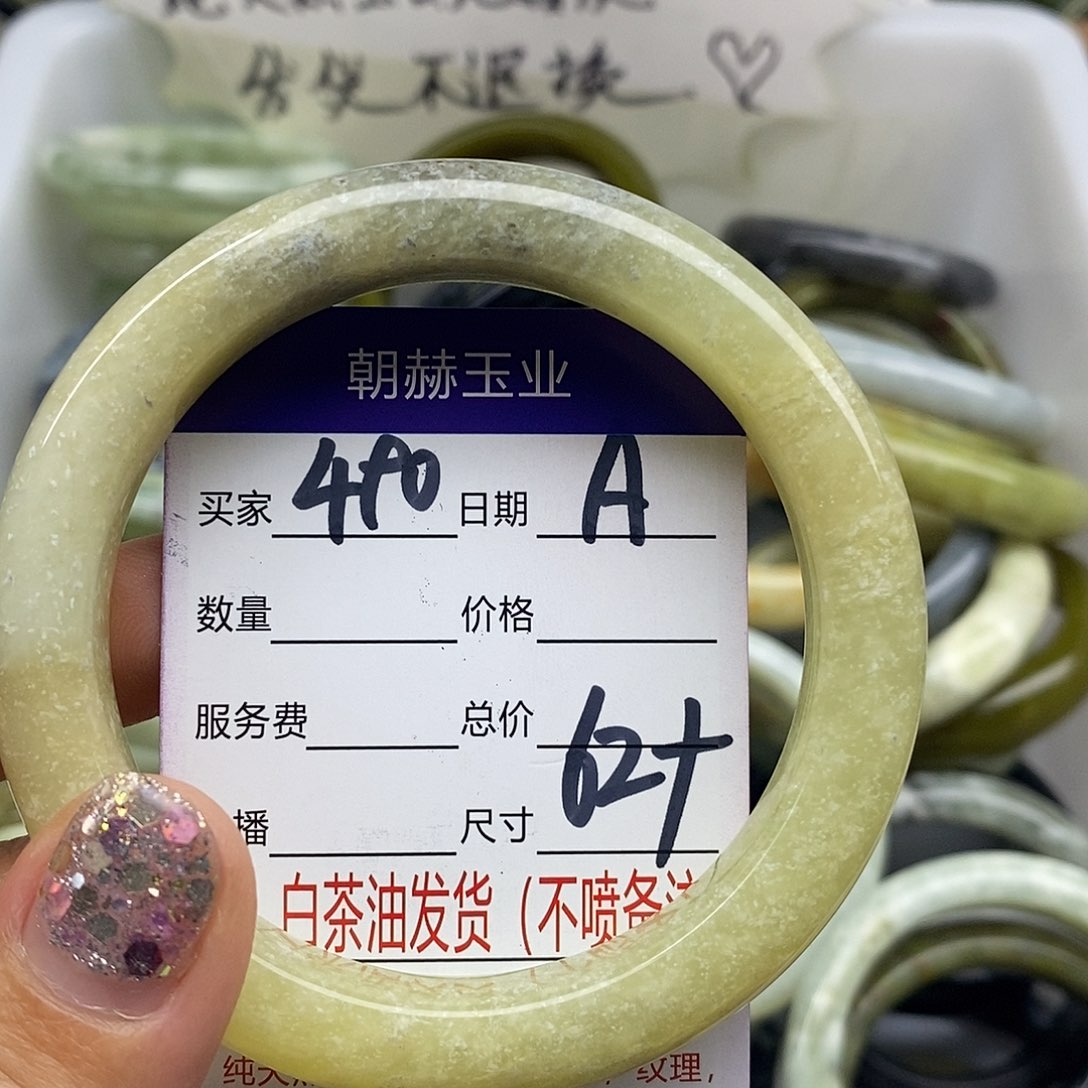 不退换
朝赫玉业
买家 490 日期 A
数量 价格
服务费 总价
播 尺寸 62+
白茶油发货（不喷备注
纯天然 纹理，